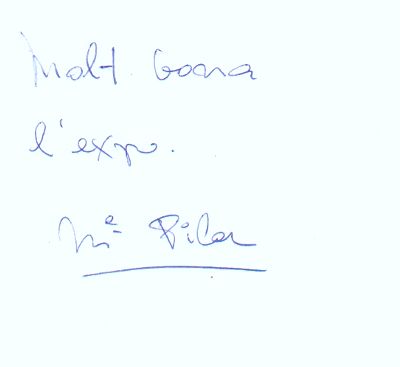 Molt bona
l'expo.
Mª Pilar